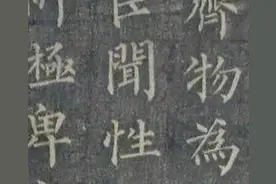 齊物為
臣聞性
極卑